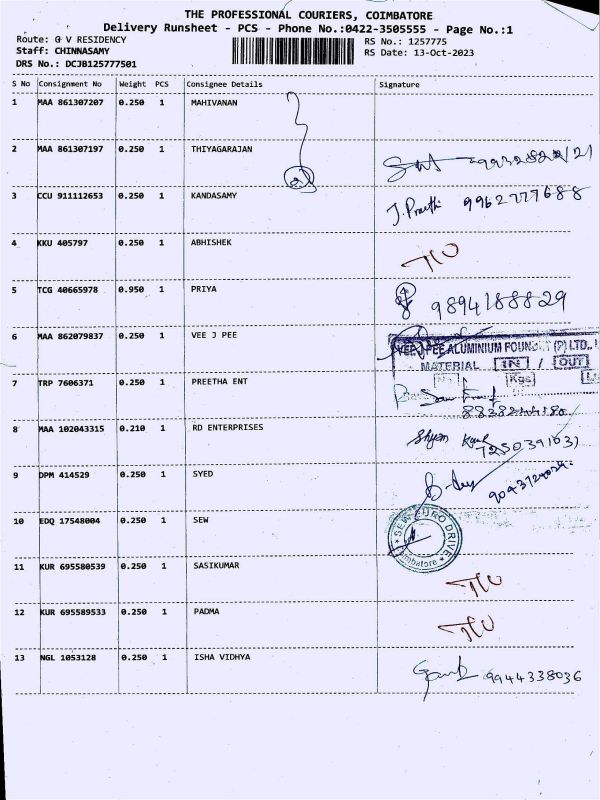 THE PROFESSIONAL COURIERS, COIMBATORE
Delivery Runsheet - PCS - Phone No.:0422-3505555 - Page No.:1
Route: G V RESIDENCY
RS No.: 1257775
Staff: CHINNASAMY
RS Date: 13-Oct-2023
DRS No.: DCJB125777501
S No Consignment No Weight PCS Consignee Details Signature
1 MAA 861307207 0.250 1 MAHIVANAN
2 MAA 861307197 0.250 1 THIYAGARAJAN
3 CCU 911112653 0.250 1 KANDASAMY J. Preethi 9962777688
4 KKU 405797 0.250 1 ABHISHEK
5 TCG 40665978 0.950 1 PRIYA 9894188829
6 MAA 862079837 0.250 1 VEE J PEE
VEE J PEE ALUMINIUM FOUNDRY (P) LTD.,
MATERIAL IN / OUT
Kgs
7 TRP 7606371 0.250 1 PREETHA ENT
8 MAA 102043315 0.210 1 RD ENTERPRISES Shyam 7250391031
9 DPM 414529 0.250 1 SYED
10 EDQ 17548004 0.250 1 SEW
SEW EURO DRIVE
Coimbatore
11 KUR 695580539 0.250 1 SASIKUMAR
12 KUR 695589533 0.250 1 PADMA
13 NGL 1053128 0.250 1 ISHA VIDHYA 9944338036